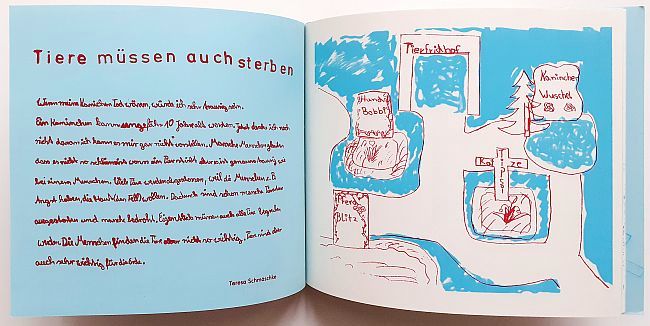 Tiere müssen auch sterben
Wenn meine Kaninchen Tod wären, würde ich sehr traurig sein.
Ein Kaninchen kann ungefähr 10 Jahre alt werden. Jetzt denke ich noch
nicht daran ich kann es mir gar nicht vorstellen. Manche Menschen
dass es nicht so schlimm ist wenn ein Tier stirbt aber ein genauso traurig wie
bei einem Menschen. Viele Tiere werden gestorben, weil die Menschen z.B.
Angst haben, die Haut das Fell wollen. Dadurch sind schon manche
ausgestorben und manche bedroht. Eigentlich müssen auch alle Tiere
werden. Die Menschen finden die Tiere aber nicht so wichtig. Tiere sind aber
auch sehr wichtig für die Erde.
Teresa Schmaschke
Tierfridhof
Kaninchen
Wuschel
Hund
Bobbi
Katze
Pferd
Blitz